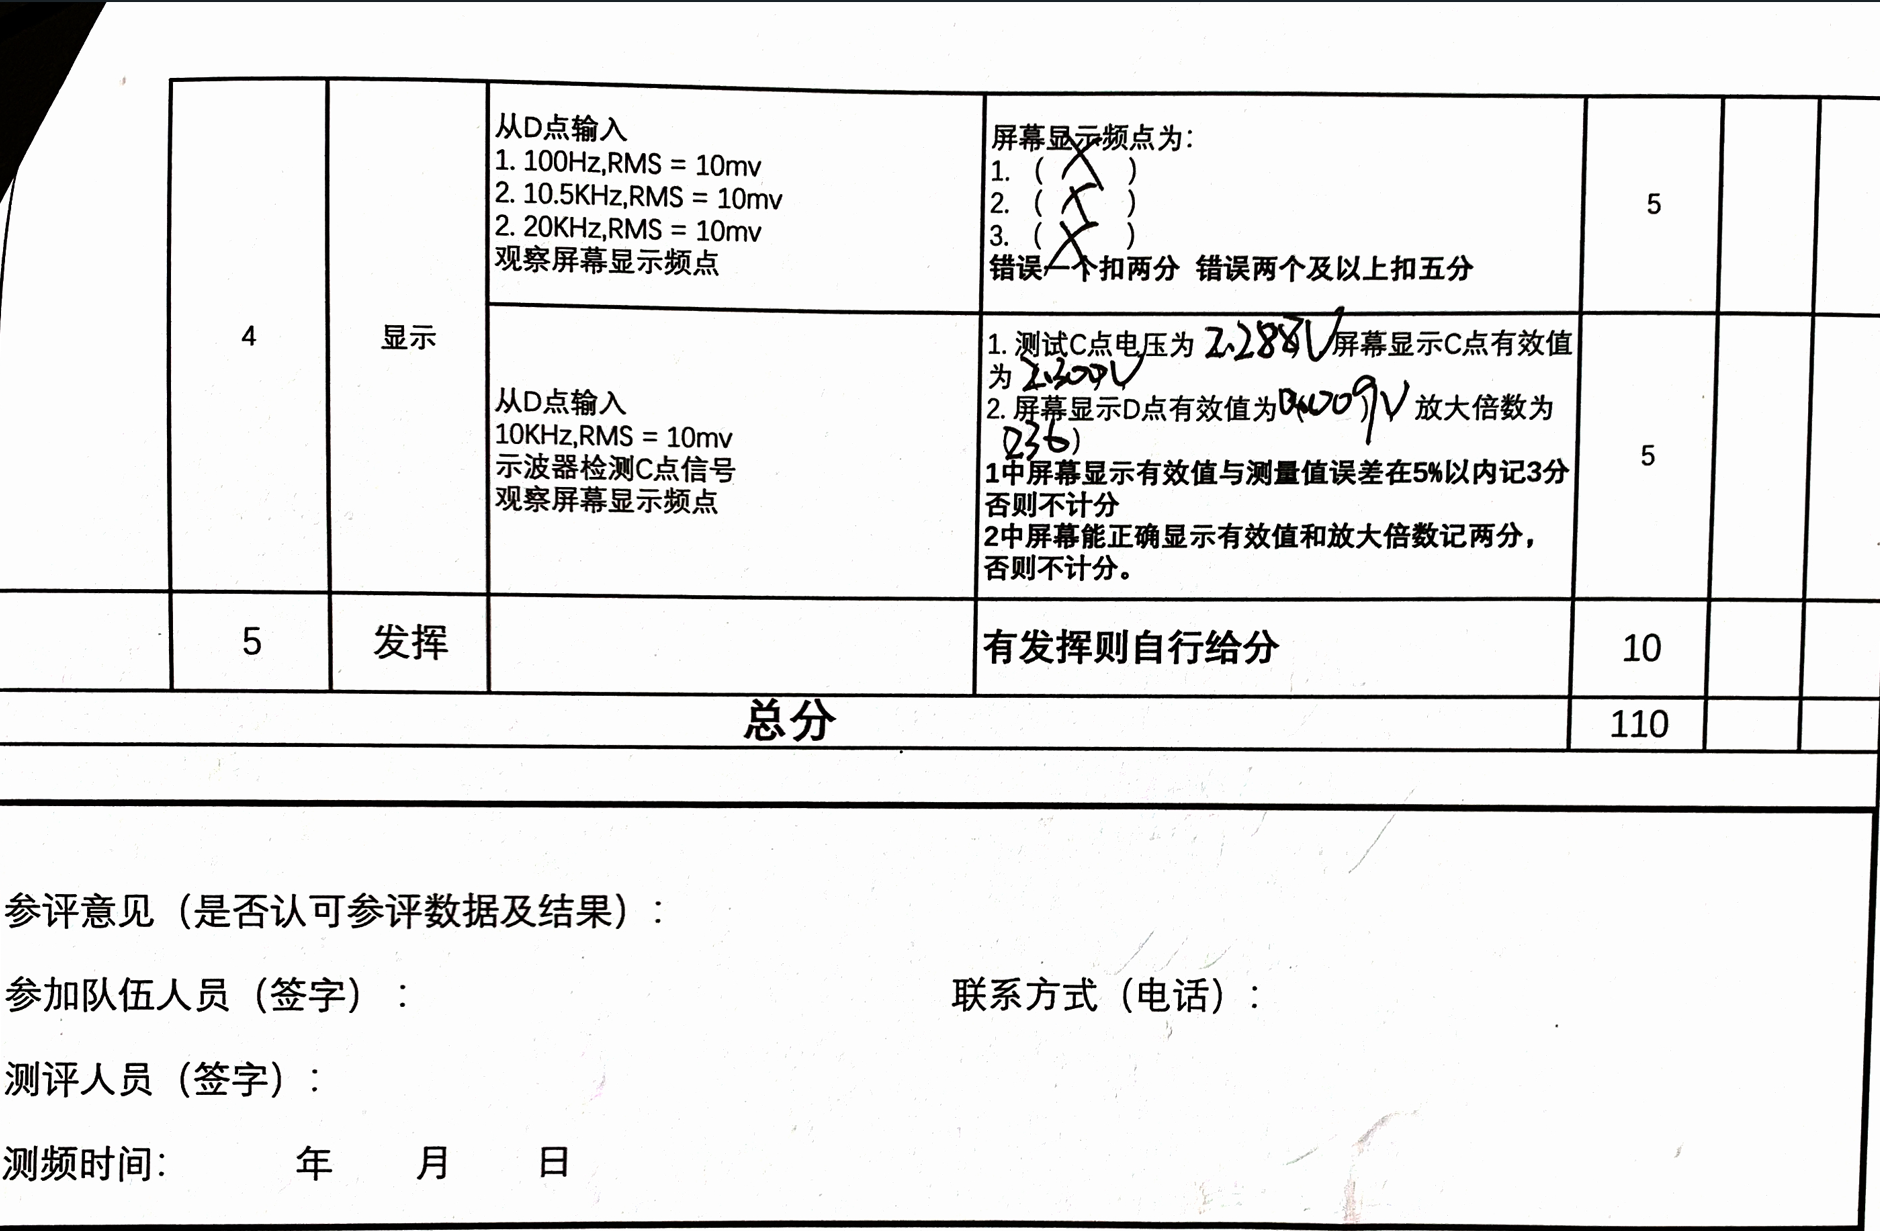 从D点输入
1. 100Hz,RMS = 10mv
2. 10.5KHz,RMS = 10mv
2. 20KHz,RMS = 10mv
观察屏幕显示频点
屏幕显示频点为：
1. （ X ）
2. （ X ）
3. （ X ）
错误一个扣两分 错误两个及以上扣五分
5
4
显示
从D点输入
10KHz,RMS = 10mv
示波器检测C点信号
观察屏幕显示频点
1. 测试C点电压为 2.288V 屏幕显示C点有效值
为 2.300V
2. 屏幕显示D点有效值为 0.009V 放大倍数为
(236)
1中屏幕显示有效值与测量值误差在5%以内记3分
否则不计分
2中屏幕能正确显示有效值和放大倍数记两分，
否则不计分。
5
5
发挥
有发挥则自行给分
10
总分
110
参评意见（是否认可参评数据及结果）：
参加队伍人员（签字）：
联系方式（电话）：
测评人员（签字）：
测频时间： 年 月 日